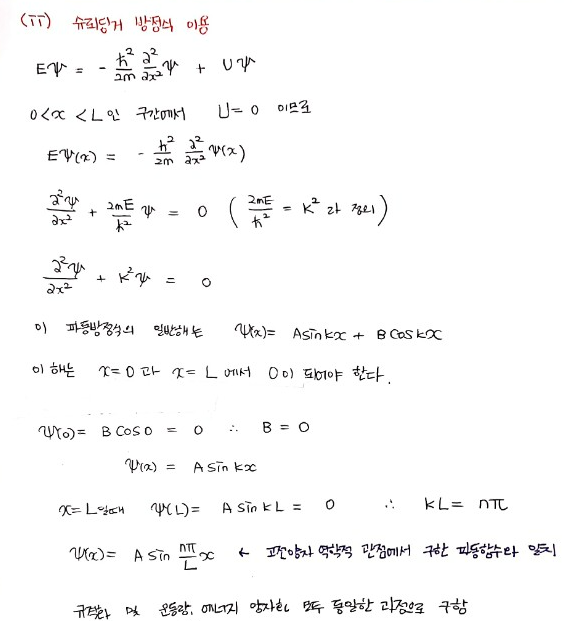 (ii) 슈뢰딩거 방정식 이용
Eψ = - ħ²/2m ∂²/∂x² ψ + Uψ
0<x<L인 구간에서 U=0 이므로
Eψ(x) = - ħ²/2m ∂²/∂x² ψ(x)
∂²ψ/∂x² + 2mE/ħ² ψ = 0 ( 2mE/ħ² = k² 라 정의 )
∂²ψ/∂x² + k²ψ = 0
이 파동방정식의 일반해는 ψ(x)= Asinkx + Bcoskx
이 해는 x=0 과 x=L 에서 0이 되어야 한다.
ψ(0)= Bcos0 = 0 ∴ B=0
ψ(x) = Asinkx
x=L일때 ψ(L)= AsinkL = 0 ∴ kL= nπ
ψ(x)= Asin nπ/L x ← 고전양자 역학적 관점에서 구한 파동함수와 일치
규격화 및 운동량, 에너지 양자화 모두 동일한 과정으로 구함